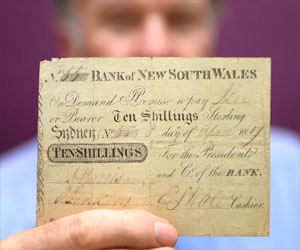 No. 55 BANK OF NEW SOUTH WALES
On Demand I Promise to pay
or Bearer Ten Shillings Sterling
Sydney (No. 8 day of April 1817
TEN SHILLINGS For the President
and Co. of the BANK.
Cashier.